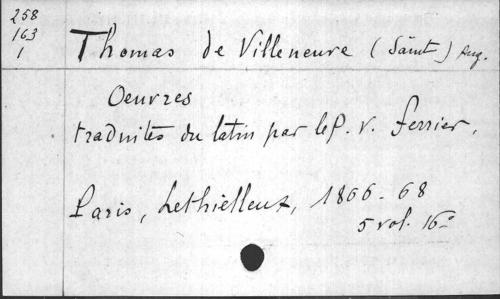 258
163
1
Thomas de Villeneuve (Saint) Aug.
Oeuvres
traduites du latin par le P. V. Ferrier.
Paris, Lethielleux, 1866-68
5 vol. 16º